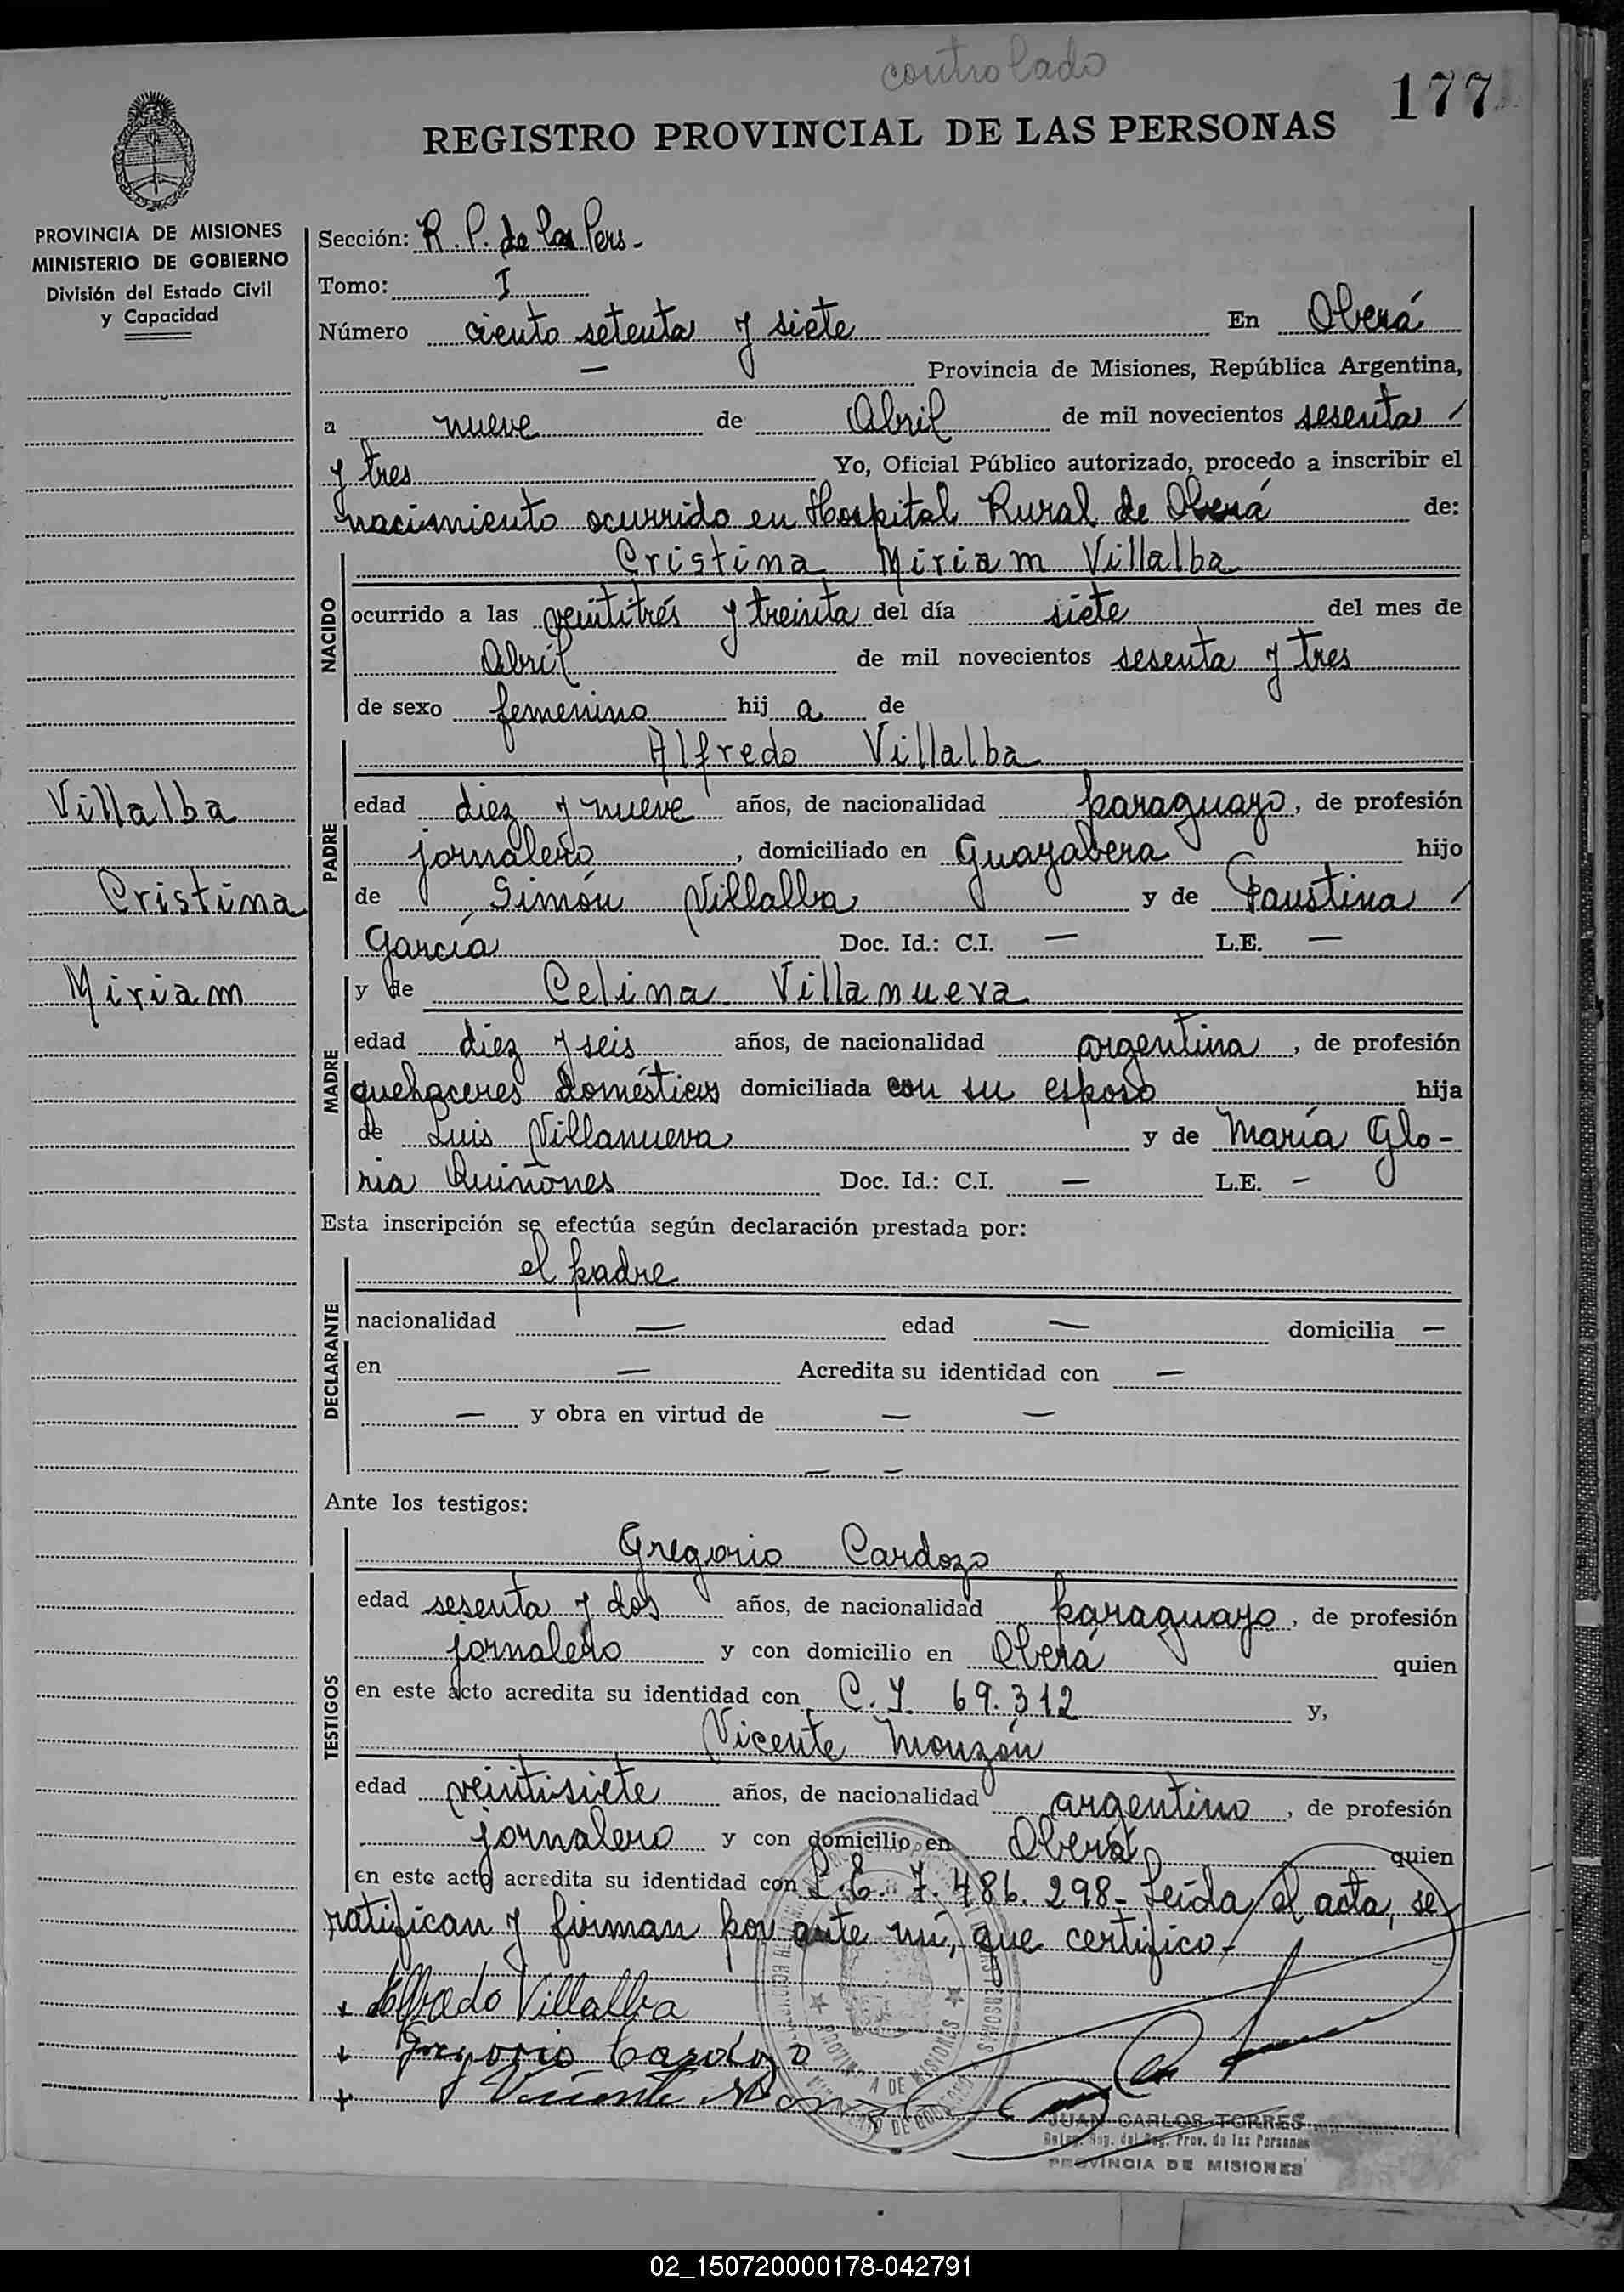 controlado
177
REGISTRO PROVINCIAL DE LAS PERSONAS
PROVINCIA DE MISIONES
MINISTERIO DE GOBIERNO
División del Estado Civil
y Capacidad
Sección: R. P. de las Pers.-
Tomo: I
Número ciento setenta y siete En Oberá
— Provincia de Misiones, República Argentina,
a nueve de Abril de mil novecientos sesenta /
y tres Yo, Oficial Público autorizado, procedo a inscribir el
nacimiento ocurrido en Hospital Rural de Oberá de:
NACIDO
Cristina Miriam Villalba
ocurrido a las veintitrés y treinta del día siete del mes de
Abril de mil novecientos sesenta y tres
de sexo femenino hij a de
PADRE
Alfredo Villalba
edad diez y nueve años, de nacionalidad paraguayo, de profesión
jornalero, domiciliado en Guayabera hijo
de Simón Villalba y de Faustina /
García Doc. Id.: C.I. — L.E. —
Villalba
Cristina
Miriam
MADRE
y de Celina Villanueva
edad diez y seis años, de nacionalidad argentina, de profesión
quehaceres domésticos domiciliada con su esposo hija
de Luis Villanueva y de María Glo-
ria Quiñones Doc. Id.: C.I. — L.E. —
Esta inscripción se efectúa según declaración prestada por:
DECLARANTE
el padre
nacionalidad — edad — domicilia —
en — Acredita su identidad con —
— y obra en virtud de — —
— —
Ante los testigos:
TESTIGOS
Gregorio Cardozo
edad sesenta y dos años, de nacionalidad paraguayo, de profesión
jornalero y con domicilio en Oberá quien
en este acto acredita su identidad con C. I. 69.312 y,
Vicente Monzón
edad veintisiete años, de nacionalidad argentino, de profesión
jornalero y con domicilio en Oberá quien
en este acto acredita su identidad con L. E. 7.486.298- Leída el acta, se
ratifican y firman por ante mí, que certifico.-
+ Alfredo Villalba
+ Gregorio Cardozo
+ Vicente
PROVINCIA DE MISIONES
JUAN CARLOS TORRES
Reg. Prov. de las Personas
PROVINCIA DE MISIONES
02_150720000178-042791